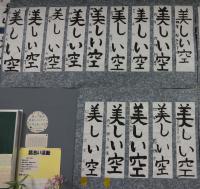 美しい空
美しい空
美しい空
美しい空
美しい空
美しい空
美しい空
美しい空
美しい空
美しい空
美しい空
美しい空
美しい空